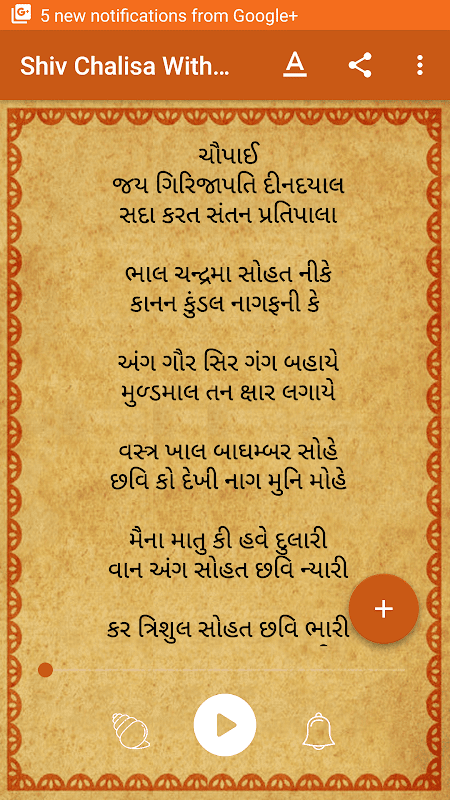 5 new notifications from Google+
Shiv Chalisa With...
ચૌપાઈ
જય ગિરિજાપતિ દીનદયાલ
સદા કરત સંતન પ્રતિપાલા
ભાલ ચન્દ્રમા સોહત નીકે
કાનન કુંડલ નાગફની કે
અંગ ગૌર સિર ગંગ બહાયે
મુળ્ડમાલ તન ક્ષાર લગાયે
વસ્ત્ર ખાલ બાઘમ્બર સોહે
છવિ કો દેખી નાગ મુનિ મોહે
મૈના માતુ કી હવે દુલારી
વાન અંગ સોહત છવિ ન્યારી
કર ત્રિશુલ સોહત છવિ ભારી